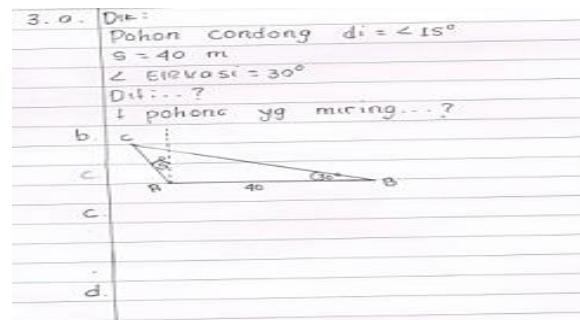 3. a. Dik :
Pohon condong di = < 15°
S = 40 m
∠ Elevasi = 30°
Dit : .. ?
t pohonc yg miring ... ?
b. C
C 15° 30°
A 40 B
C.
d.